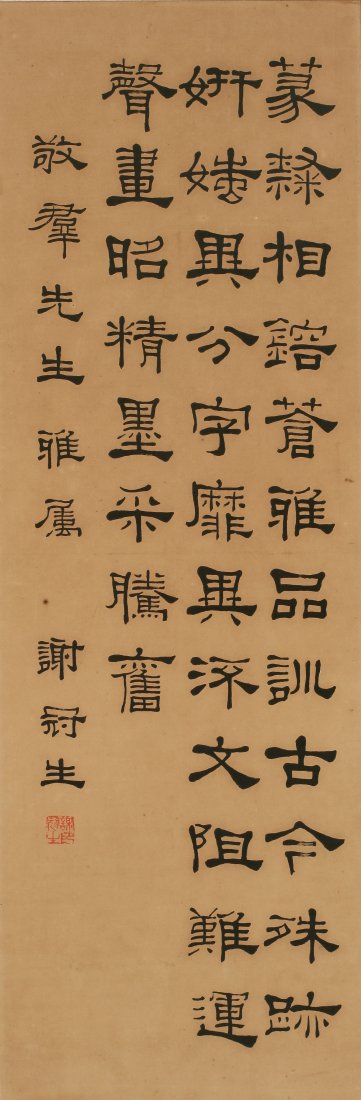 篆隸相鎔蒼雅品訓古今殊跡
妍媸異分字靡異流文阻難運
聲畫昭精墨采騰奮
敬羣先生雅属 謝冠生